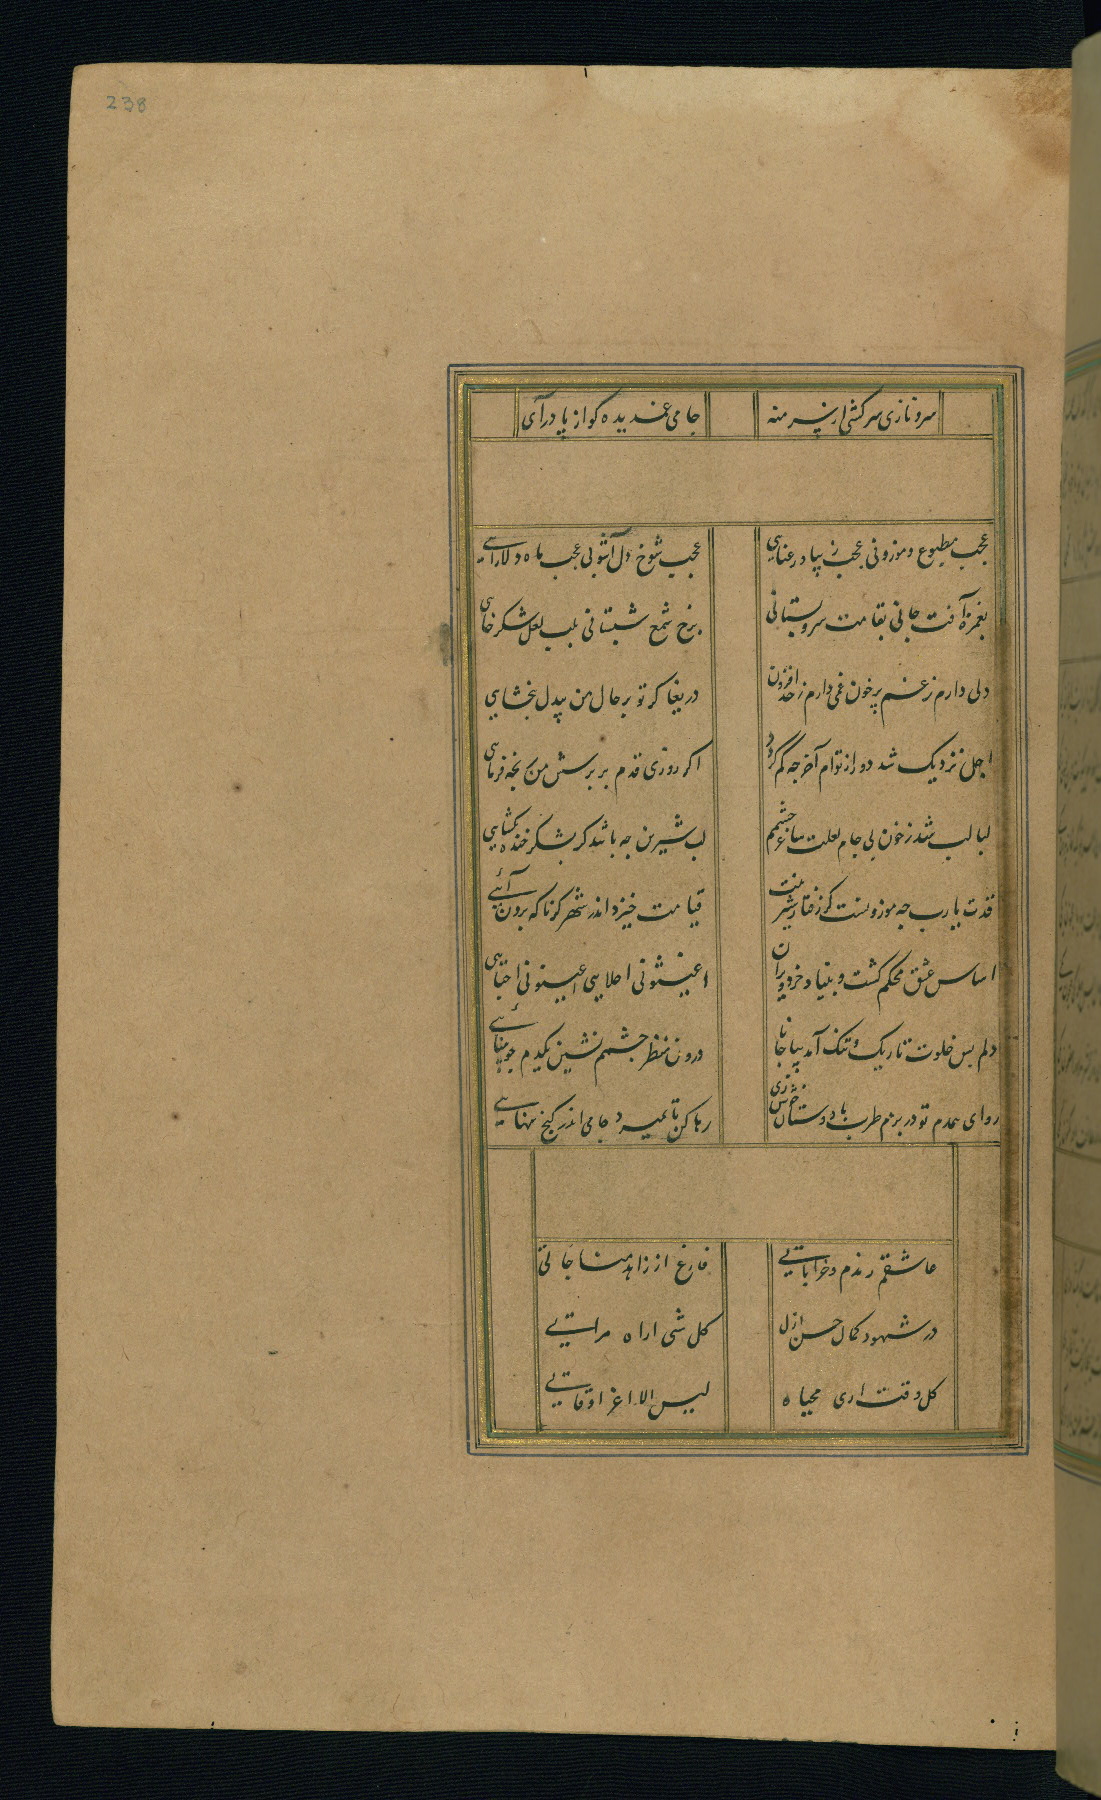 238
سرو نازی سرکشی از سر منه جامی غمدیده کو از پا درآی
عجب مطبوع و موزونی عجب زیبا و رعنایی عجب شوخ دل آشوبی عجب ماه دلارایی
بغمزه آفت جانی بقامت سرو بستانی برخ شمع شبستانی بلب لعل شکرخایی
دلی دارم ز غم پر خون غمی دارم ز حد افزون دریغا کر تو بر حال من بیدل نبخشایی
اجل نزدیک شد دور از توام آخر چه کم کردد اکر روزی قدم بر پرسش من رنجه فرمایی
لبالب شد ز خون بی جام لعلت ساغر چشمم لب شیرین چه باشد کر بشکر خنده بکشایی
قدت یارب چه موزونست کز رفتار شیرینت قیامت خیزد اندر شهر کر ناکه برون آیی
اساس عشق محکم کشت و بنیاد خرد ویران اغیثونی احلایی اعینونی احبایی
دلم بس خلوت تاریک و تنک آمد بیا جانا درون منظر چشمم نشین یکدم چو بینایی
رو ای همدم تو در بزم طرب با دوستان خوش زی رها کن تا بمیرد جامی اندر کنج تنهایی
عاشقم رندم و خراباتی فارغ از زاهد مناجاتی
در شهود کمال حسن ازل کل شی اراه مراتی
کل وقت اری محیاه لیس الا اغر اوقاتی